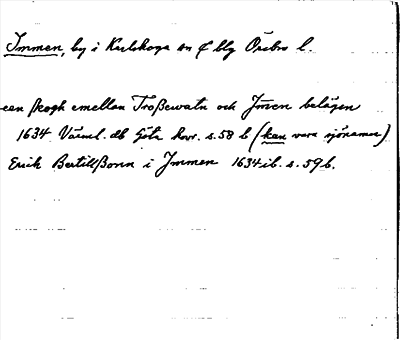 Immen, by i Karlskoga sn o blg Örebro l.
een skogh emellan Troßewatn och Jmen belägen
1634 Värml. db Göta hovr. s. 58 b (kan vara sjönamn)
Erich Bertillßonn i Jmmen 1634 ib. s. 59 b.